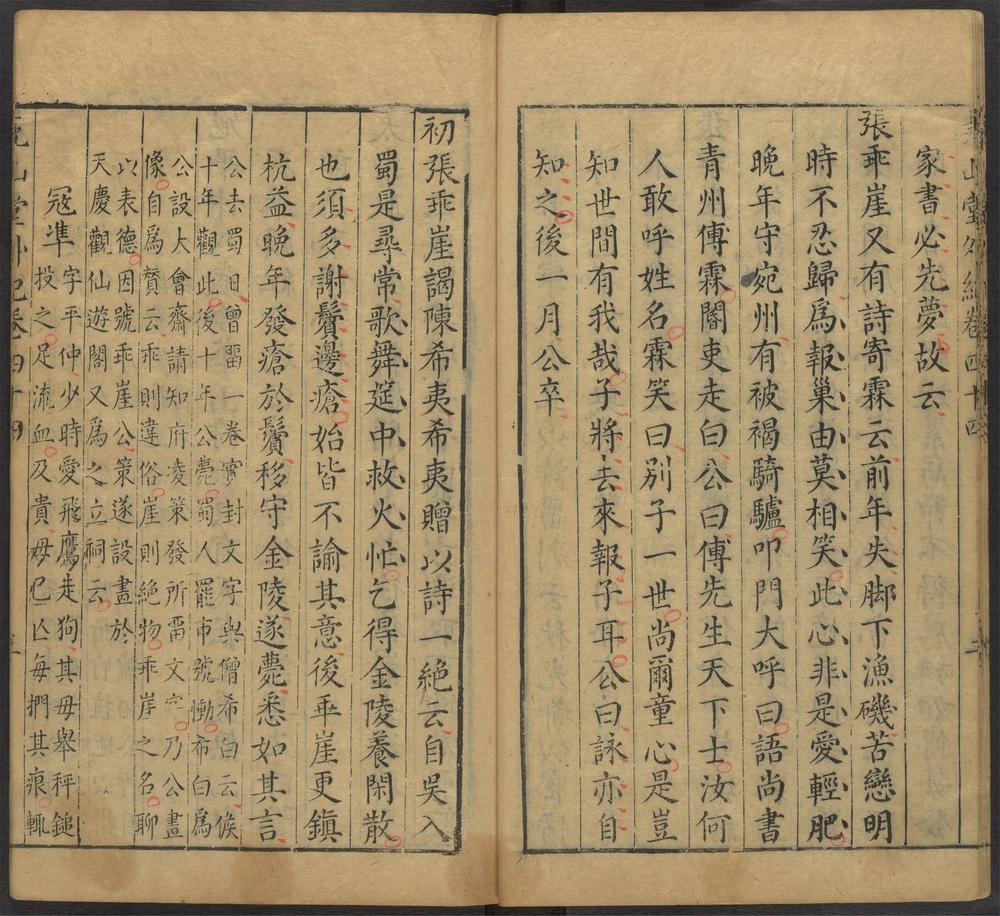 堯山堂外紀卷四十四
家書必先夢故云
張乖崖又有詩寄霖云前年失脚下漁磯苦戀明
時不忍歸爲報巢由莫相笑此心非是愛輕肥
晚年守宛州有被褐騎驢叩門大呼曰語尚書
青州傅霖閽吏走白公曰傅先生天下士汝何
人敢呼姓名霖笑曰別子一世尚爾童心是豈
知世間有我哉子將去來報子耳公曰詠亦自
知之後一月公卒
初張乖崖謁陳希夷希夷贈以詩一絶云自吳入
蜀是尋常歌舞筵中救火忙乞得金陵養閑散
也須多謝鬢邊瘡始皆不諭其意後乖崖更鎮
杭益晚年發瘡於鬢移守金陵遂薨悉如其言
公去蜀日曾畱一卷實封文字與僧希白云候
十年觀此後十年公薨蜀人罷市號慟希白爲
公設大會齋請知府凌策發所畱文字乃公畫
像自爲贊云乖則違俗崖則絶物乖崖之名聊
以表德因號乖崖公策遂設畫於
天慶觀仙遊閣又爲之立祠云
冦準
字平仲少時愛飛鷹走狗其毋舉秤鎚
投之足流血及貴毋已亾每捫其痕輒
堯山堂外紀卷四十四